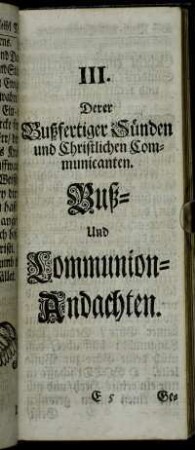 III.
Derer
Bußfertiger Sünden
und Christlichen Com-
municanten.
Buß-
Und
Communion-
Andachten.
E 5 Ge-